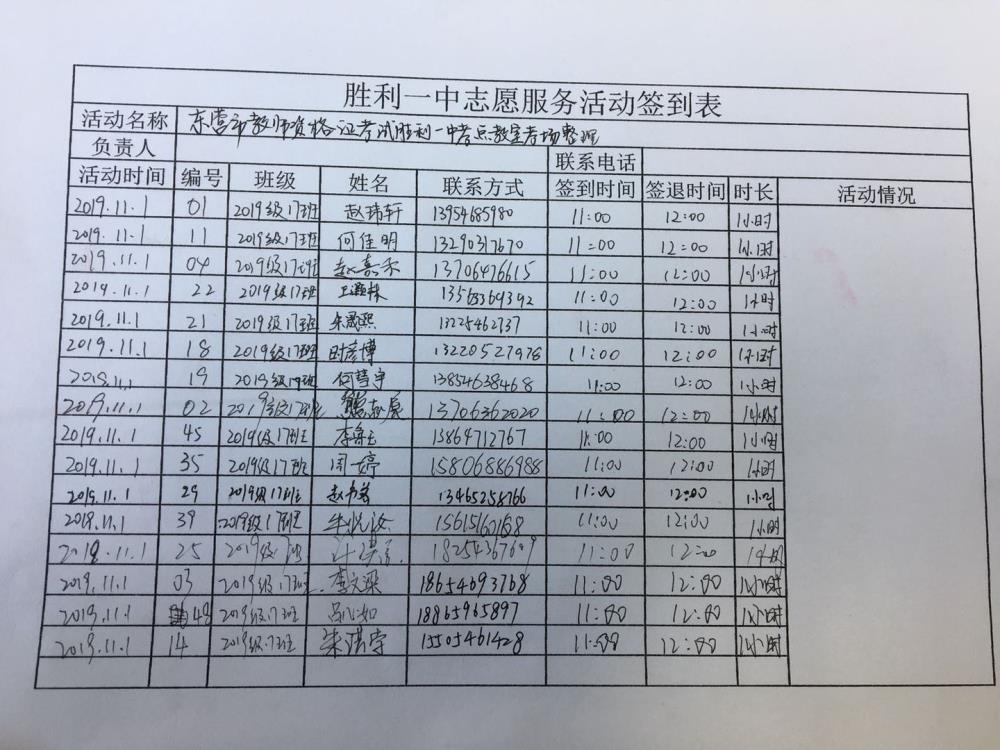 胜利一中志愿服务活动签到表
活动名称 东营市教师资格证考试胜利一中考点教室考场整理
负责人 联系电话
活动时间 编号 班级 姓名 联系方式 签到时间 签退时间 时长 活动情况
2019.11.1 01 2019级17班 赵玮轩 13954685980 11:00 12:00 1小时
2019.11.1 11 2019级17班 何佳明 13290317670 11:00 12:00 1小时
2019.11.1 04 2019级17班 赵嘉禾 13706476615 11:00 12:00 1小时
2019.11.1 22 2019级17班 13563369392 11:00 12:00 1小时
2019.11.1 21 2019级17班 朱晟熙 13225462737 11:00 12:00 1小时
2019.11.1 18 2019级17班 时彦博 13220527978 11:00 12:00 1小时
2019.11.1 19 2019级17班 何彗宇 13854638468 11:00 12:00 1小时
2019.11.1 02 2019级17班 13706362020 11:00 12:00 1小时
2019.11.1 45 2019级17班 13864712767 11:00 12:00 1小时
2019.11.1 35 2019级17班 周婷 15806886988 11:00 12:00 1小时
2019.11.1 29 2019级17班 13465258766 11:00 12:00 1小时
2019.11.1 39 2019级17班 朱悦汝 11:00 12:00 1小时
25 2019级17班 11:00 12:00 1小时
2019.11.1 03 2019级17班 李文梁 18654693768 11:00 12:00 1小时
2019.11.1 48 2019级17班 18865965897 11:00 12:00 1小时
2019.11.1 14 2019级17班 朱淇宇 15505461428 11:00 12:00 1小时